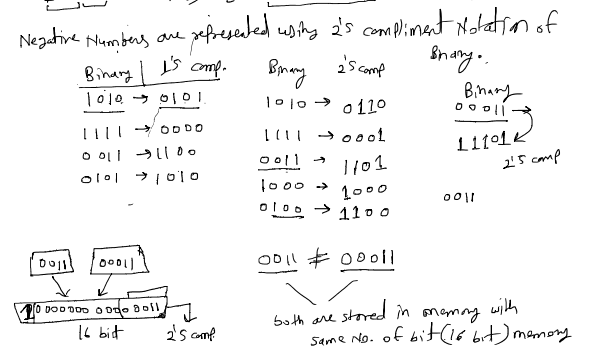 Negative Numbers are represented using 2's compliment Notation of
Binary.
Binary | 1's comp.
1010 → 0101
1111 → 0000
0011 → 1100
0101 → 1010
Binary 2's comp
1010 → 0110
1111 → 0001
0011 → 1101
1000 → 1000
0100 → 1100
Binary
00011 →
11101
2's comp
0011
0011 00011
16 bit 2's comp.
0011 ≠ 00011
both are stored in memory with
same No. of bit (16 bit) memory